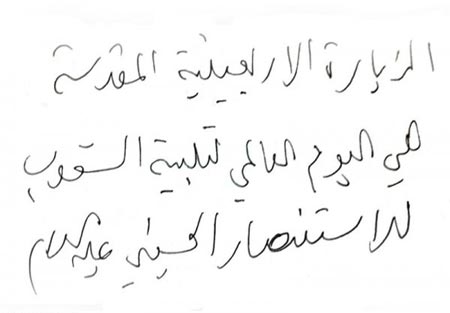 الزيارة الاربعينية المقدسة
هي اليوم العالمي لتلبية الشعوب
للاستنصار الحسيني عليه السلام